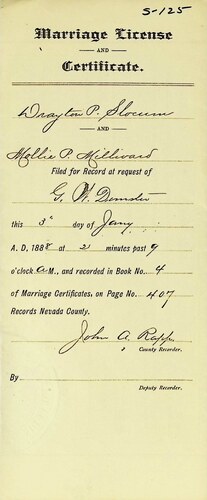 S-125
Marriage License
AND
Certificate.
Drayton P. Slocum
AND
Mollie P. Milliward
Filed for Record at request of
G. W. Demster
this 3d day of Jany
A. D. 1888 at 2 minutes past 9
o'clock A M., and recorded in Book No. 4
of Marriage Certificates, on Page No. 407
Records Nevada County.
John A. Rapp
County Recorder.
By
Deputy Recorder.